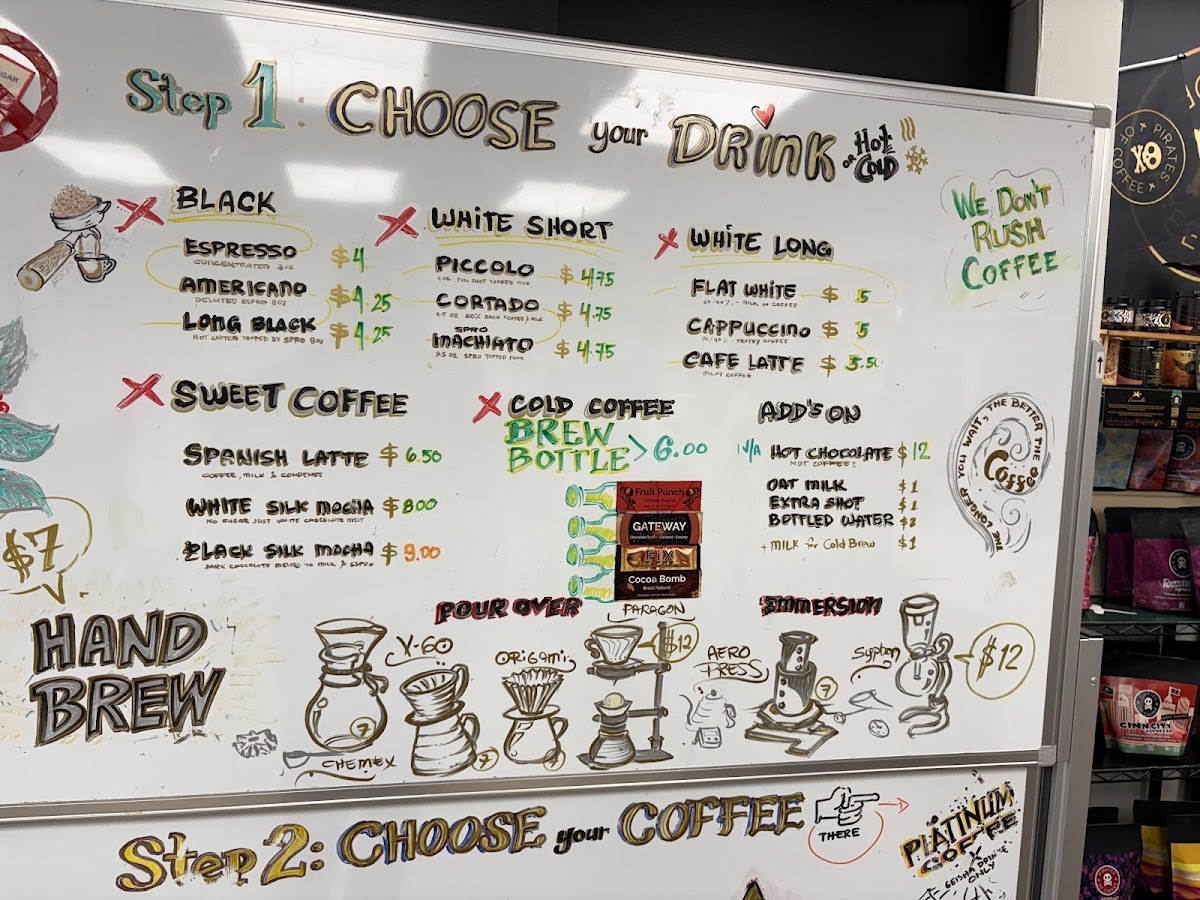 Step 1: CHOOSE your DRINK
Hot
OR COLD
WE DON'T
RUSH
COFFEE
BLACK
ESPRESSO $4.
AMERICANO $4.25
LONG BLACK $4.25
HOT WATER TOPPED BY SPRO 8oz
WHITE SHORT
PICCOLO $4.75
CORTADO $4.75
SPRO
MACHIATO $4.75
WHITE LONG
FLAT WHITE $5
CAPPUCCINO $5
CAFE LATTE $5.50
MILKY COFFEE
SWEET COFFEE
SPANISH LATTE $6.50
COFFEE, MILK & CONDENSE
WHITE SILK MOCHA $800
NO SUGAR JUST WHITE CHOCOLATE MELT
BLACK SILK MOCHA $9.00
DARK CHOCOLATE MELTED TO MILK & ESPRO
COLD COFFEE
BREW
BOTTLE > 6.00
Fruit Punch
GATEWAY
FIX
Cocoa Bomb
Brazil Natural
ADD'S ON
N/A HOT CHOCOLATE $12
NOT COFFEE!!
OAT MILK $1
EXTRA SHOT $1
BOTTLED WATER
+ MILK for Cold Brew $1
THE LONGER YOU WAIT, THE BETTER THE
Coffee
$7
HAND
BREW
POUR OVER
CHEMEX
7
V-60
7
ORIGAMI
7
PARAGON
$12
IMMERSION
AERO
PRESS
7
Syphon
$12
Step 2: CHOOSE your COFFEE
THERE
PLATINUM
COFFEE
GEISHA DRINK
ONLY
PIRATES OF COFFEE
CINNCITY